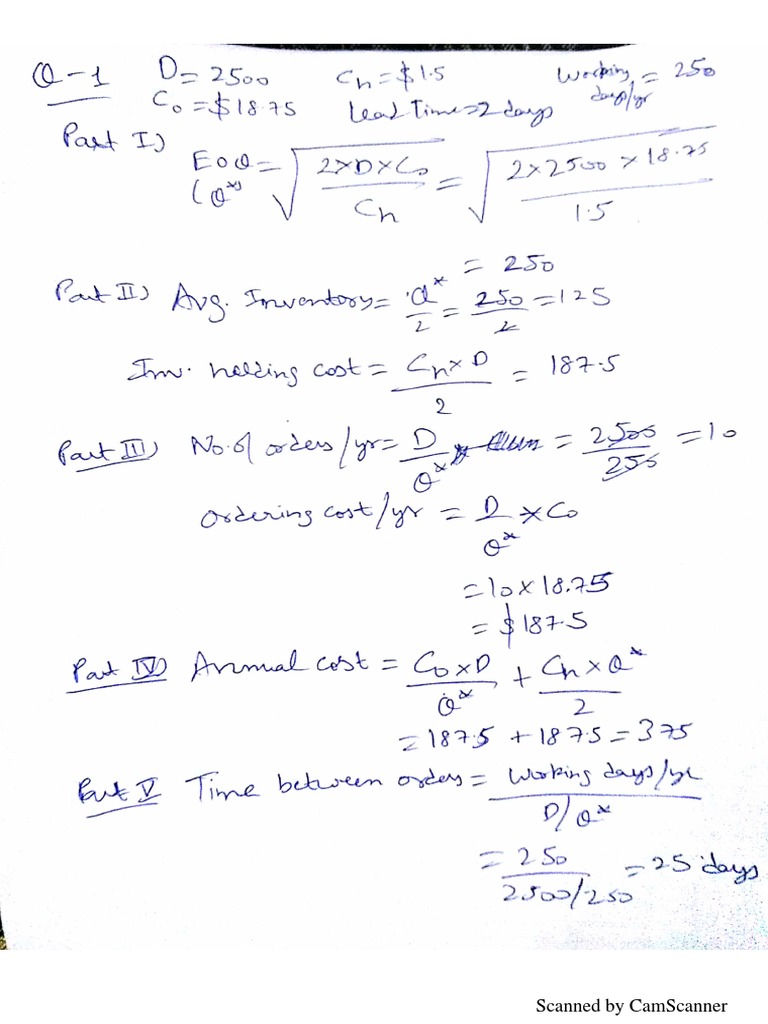 Q-1 D= 2500 Ch = $1.5 Working days/yr = 250
Co = $18.75 Lead Time = 2 days
Part I)
EOQ (Q*) = √(2×D×Co / Ch) = √(2×2500×18.75 / 1.5)
= 250
Part II) Avg. Inventory = Q*/2 = 250/2 = 125
Inv. holding cost = Ch×D / 2 = 187.5
Part III) No. of orders/yr = D/Q* = 2500/250 = 10
Ordering cost/yr = D/Q* × Co
= 10 × 18.75
= $187.5
Part IV) Annual cost = Co×D / Q* + Ch×Q* / 2
= 187.5 + 187.5 = 375
Part V Time between orders = Working days/yr / D/Q*
= 250 / 2500/250 = 25 days
Scanned by CamScanner